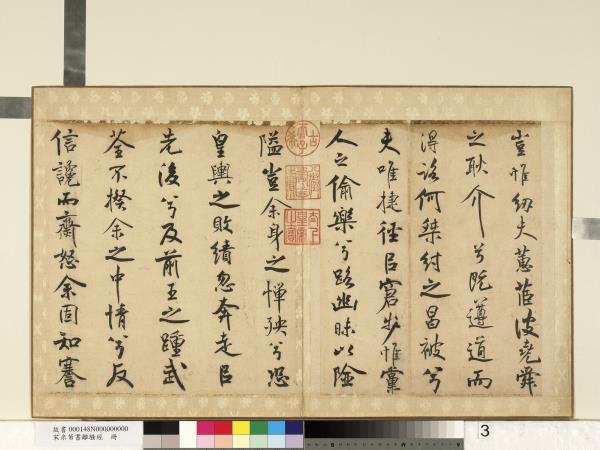 豈惟紉夫蕙茝彼堯舜
之耿介兮既遵道而
得路何桀紂之昌被兮
夫唯捷徑㠯窘步惟黨
人之偷樂兮路幽昧以險
隘豈余身之憚殃兮恐
皇輿之敗績忽奔走㠯
先後兮及前王之踵武
荃不揆余之中情兮反
信讒而齋怒余固知謇
古希天子
八徵耄念之寶
太上皇帝之寶
故書 000148N000000000
宋米芾書離騷經 冊
3